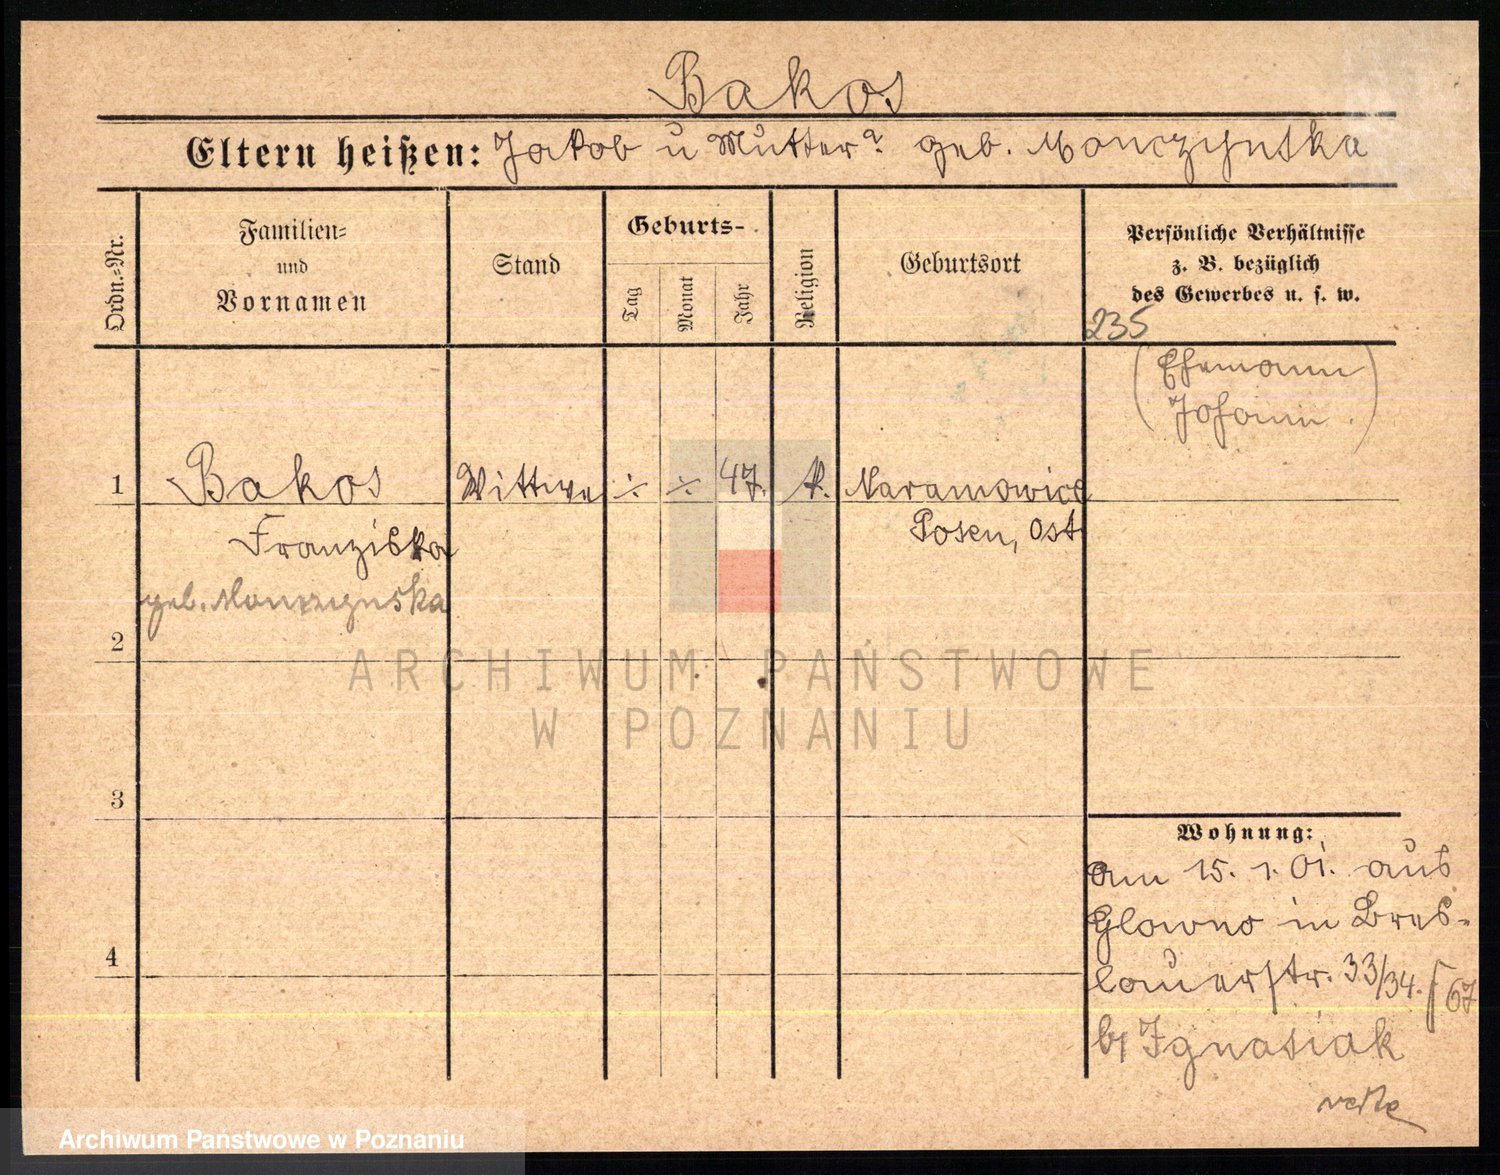 Bakos
Eltern heißen: Jakob u Mutter? geb. Monczynska
Ordn.-Nr.
Familien-
und
Vornamen
Stand
Geburts-
Tag
Monat
Jahr
Religion
Geburtsort
Persönliche Verhältnisse
z. B. bezüglich
des Gewerbes u. s. w.
235
(Ehemann
Johann.)
1 Bakos Wittwe ÷ ÷ 47. k. Naramowice
Franziska Posen, Ost
geb. Monczynska
2
3
4
Wohnung:
am 15. 1. 01. aus
Glowno in Bres-
lauerstr. 33/34. 67
b/ Ignasiak
ARCHIWUM PAŃSTWOWE
W POZNANIU
Archiwum Państwowe w Poznaniu